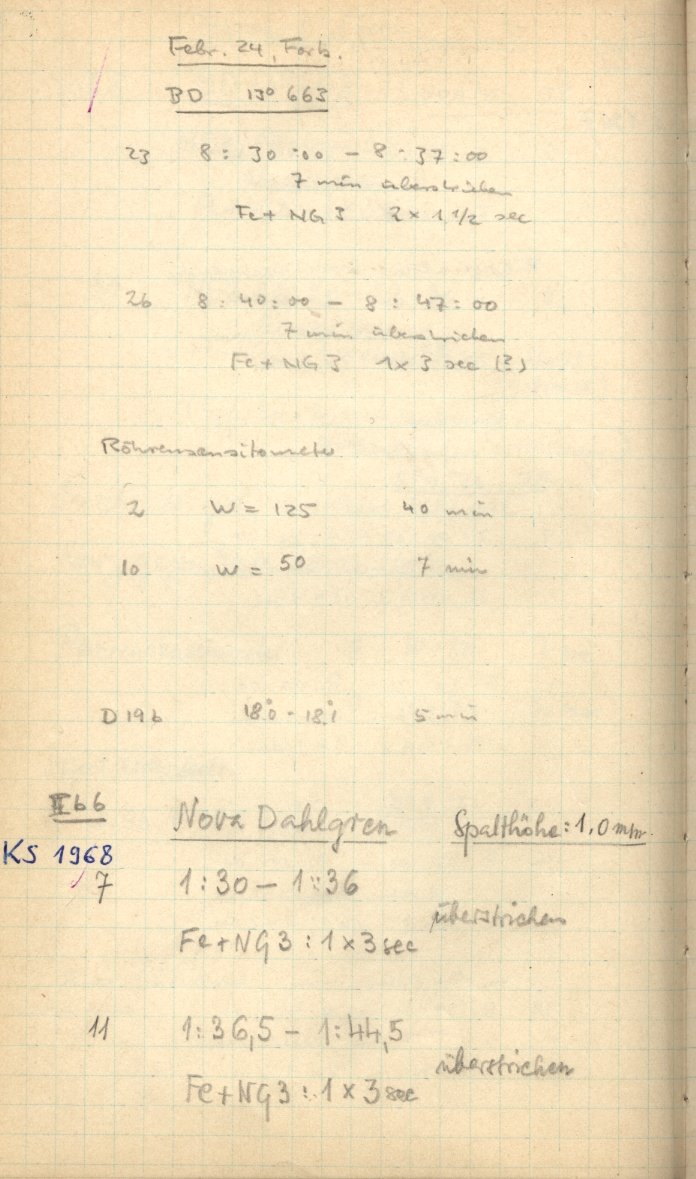 Febr. 24, Forts.
BD 13° 663
23 8 : 30 : 00 – 8 : 37 : 00
7 min überstrichen
Fe + NG 3 2 × 1 1/2 sec
26 8 : 40 : 00 – 8 : 47 : 00
7 min überstrichen
Fe + NG 3 1 × 3 sec (?)
Röhrensensitometer
2 W = 125 40 min
10 W = 50 7 min
D 19 b 18°.0 - 18°.1 5 min
II b 6
Nova Dahlgren Spalthöhe: 1,0 mm.
KS 1968
7 1 : 30 – 1 : 36
überstrichen
Fe + NG 3 : 1 × 3 sec
11 1 : 36,5 – 1 : 44,5
überstrichen
Fe + NG 3 : 1 × 3 sec